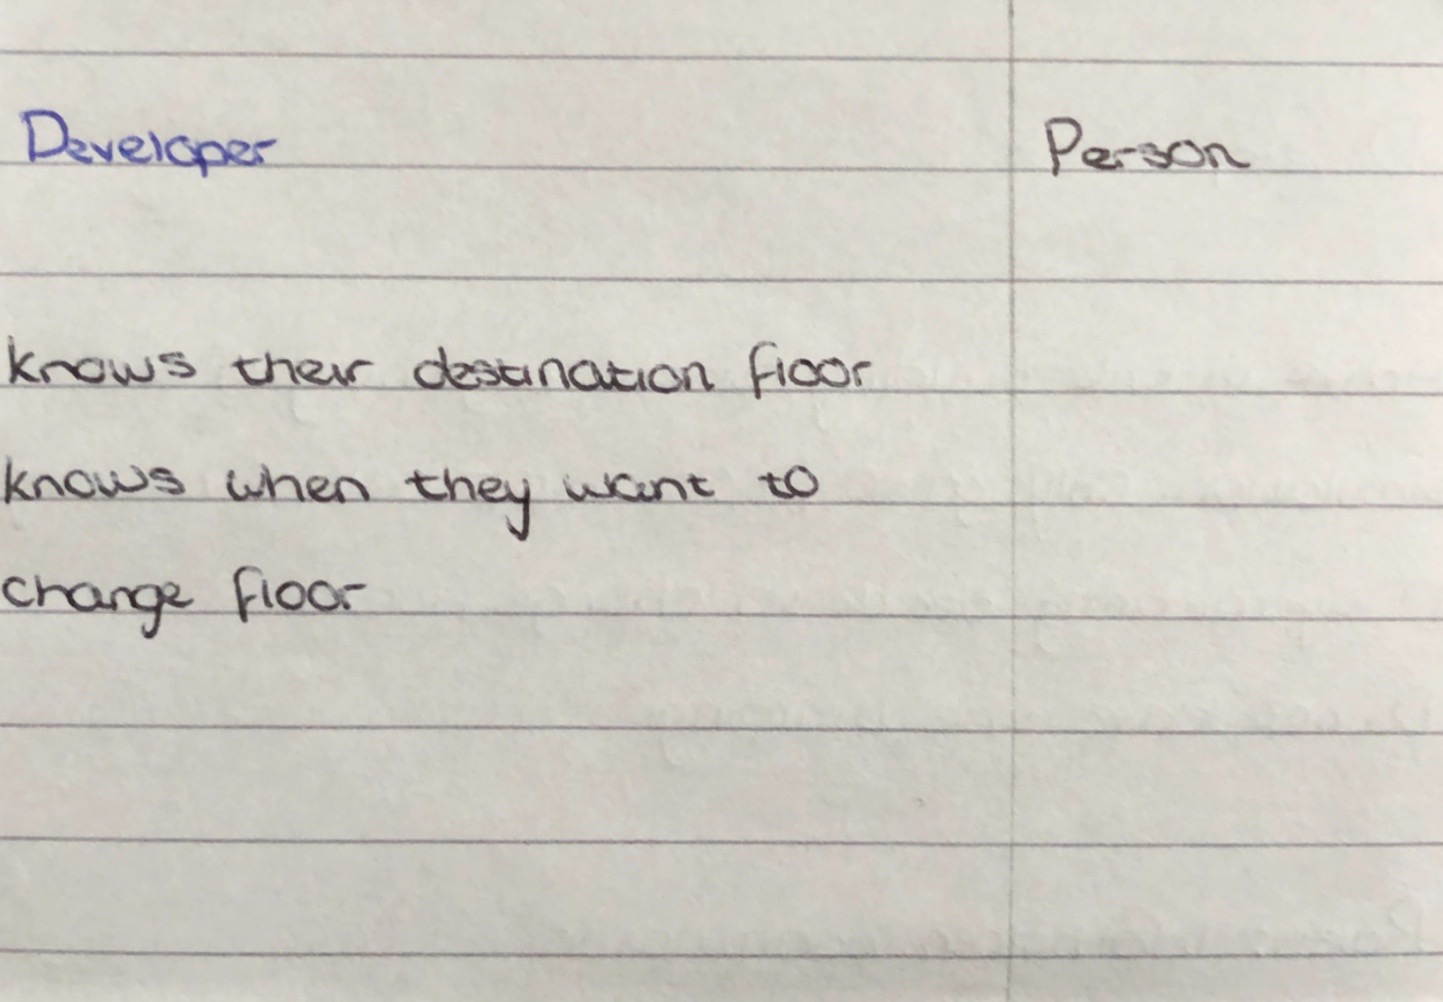 Developer
Person
knows their destination floor
knows when they want to
change floor